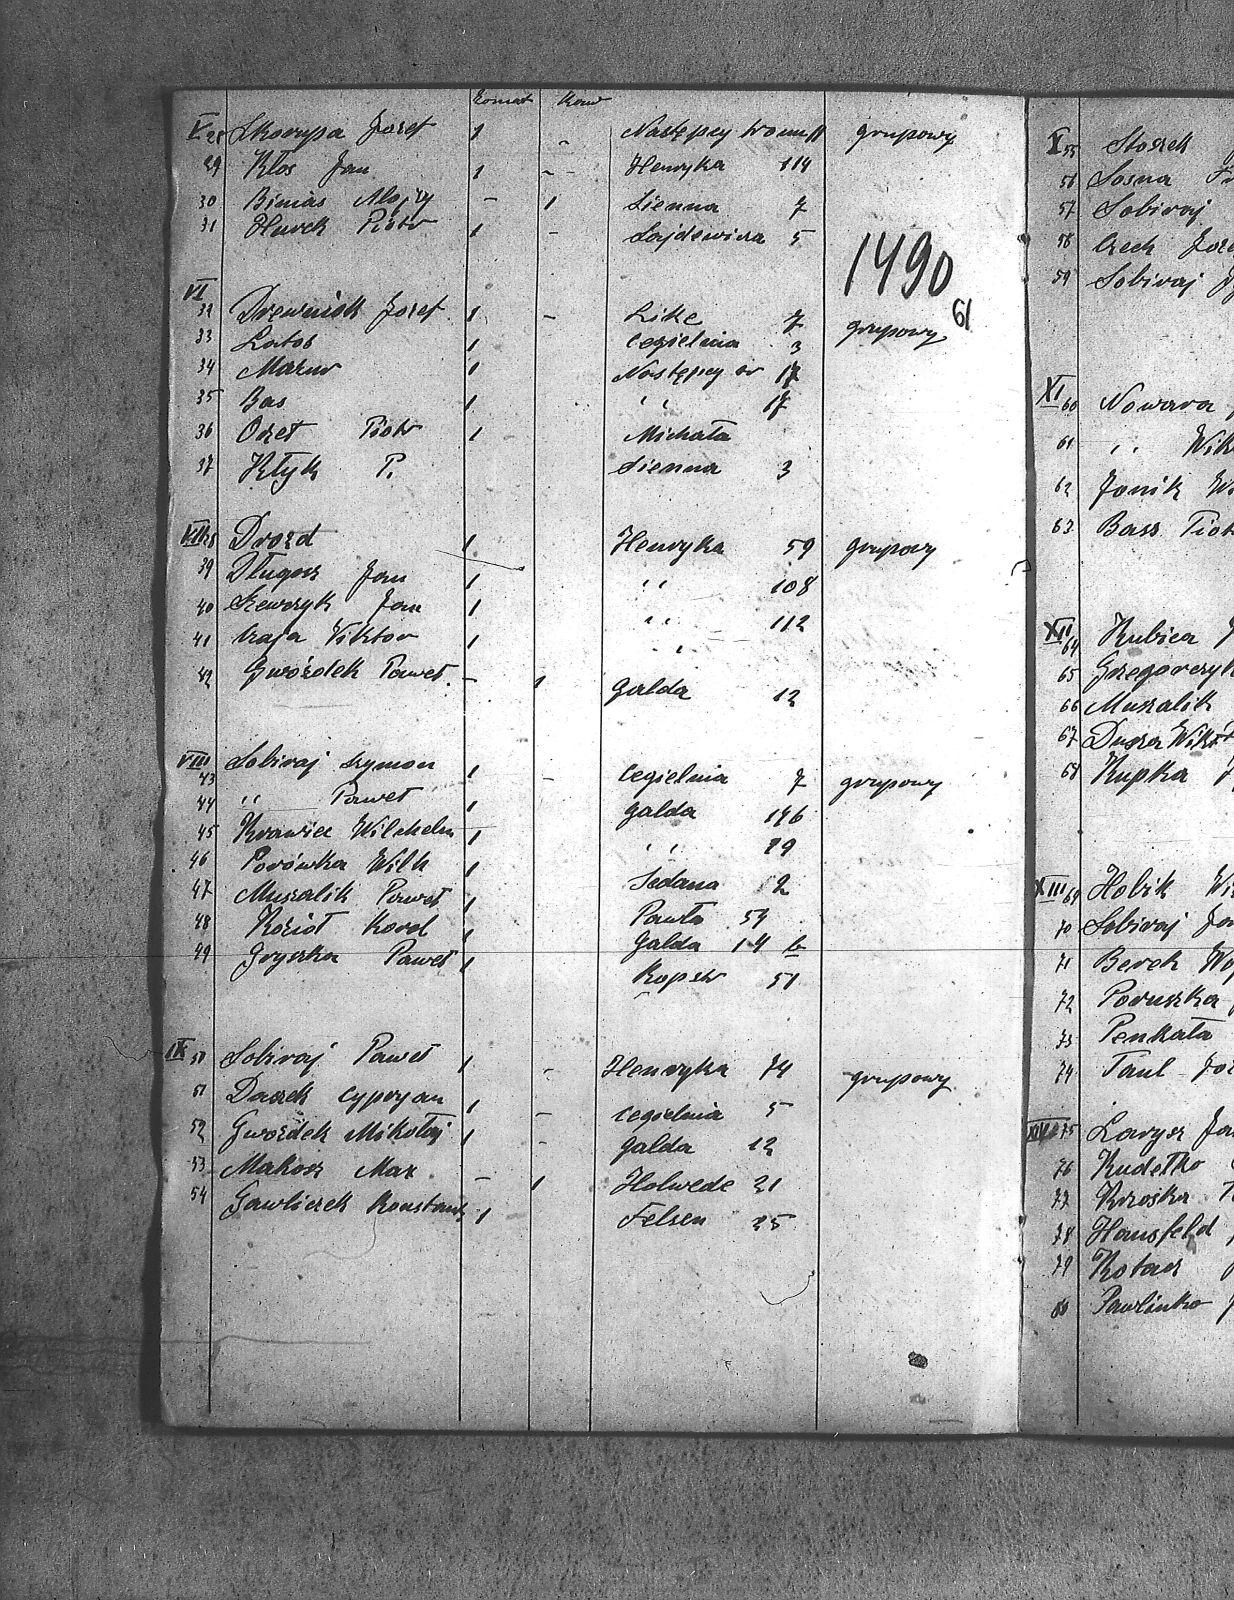 żonat Kaw
V 28 Skorupa Jozef 1 - Następcy tronu 11 grupowy
29 Kłos Jan 1 - Henryka 114
30 Alojzy - 1 Sienna 7
31 Hurek Piotr 1 - 5
1490
61
VI
32 Drewniok Jozef 1 - Like 7 grupowy
33 Latos 1 Cegielnia 3
34 Mazur 1 Następcy tr 17
35 Bas 1 ,, 17
36 Oset Piotr 1 Michała
37 Kłyk P. Sienna 3
VII 38 Drozd 1 Henryka 59 grupowy
39 Długosz Jan 1 ,, 108
40 Szewczyk Jan 1 ,, 112
41 Czaja Wiktor 1 ,
42 Gwóźdek Paweł - 1 Galda 12
VIII
43 Sobiraj Szymon 1 - Cegielnia 7 grupowy
44 ,, Paweł 1 Galda 146
45 Krawiec Wilchelm 1 ,, 29
46 Porówka Wilh 1 Sedana 2
47 Muszalik Paweł 1 Pawła 54
48 Kozioł Karol 1 Galda 14 b
49 Gryszka Paweł 1 Kopev 51
IX 50 Sobiraj Paweł 1 - Henryka 74 grupowy
51 Daszek Cypryan 1 - Cegielnia 5
52 Gwoździek Mikołaj 1 - Galda 12
53 Makosz Max - 1 Holwede 21
54 Gawliczek Konstanty 1 Felsen 25
X 55 Stoszek
56 Sosna Fr
57 Sobiraj
58 Czech Joze
59 Sobiraj
XI 60 Nowara
61 ,, Wik
62 Jonik
63 Bass Piotr
XII 64 Kubica
65 Grzegorczyk
66 Muszalik
67 Dusza Wikt
68 Kupka
XIII 69 Hobik Wi
70 Sobiraj Jan
71 Berek Woj
72 Poruszka
73 Penkała
74 Paul Joz
XIV 75 Ja
76 Kudełko
77 Kroska
78 Hausfeld
79 Kotacz
80 Pawlinko